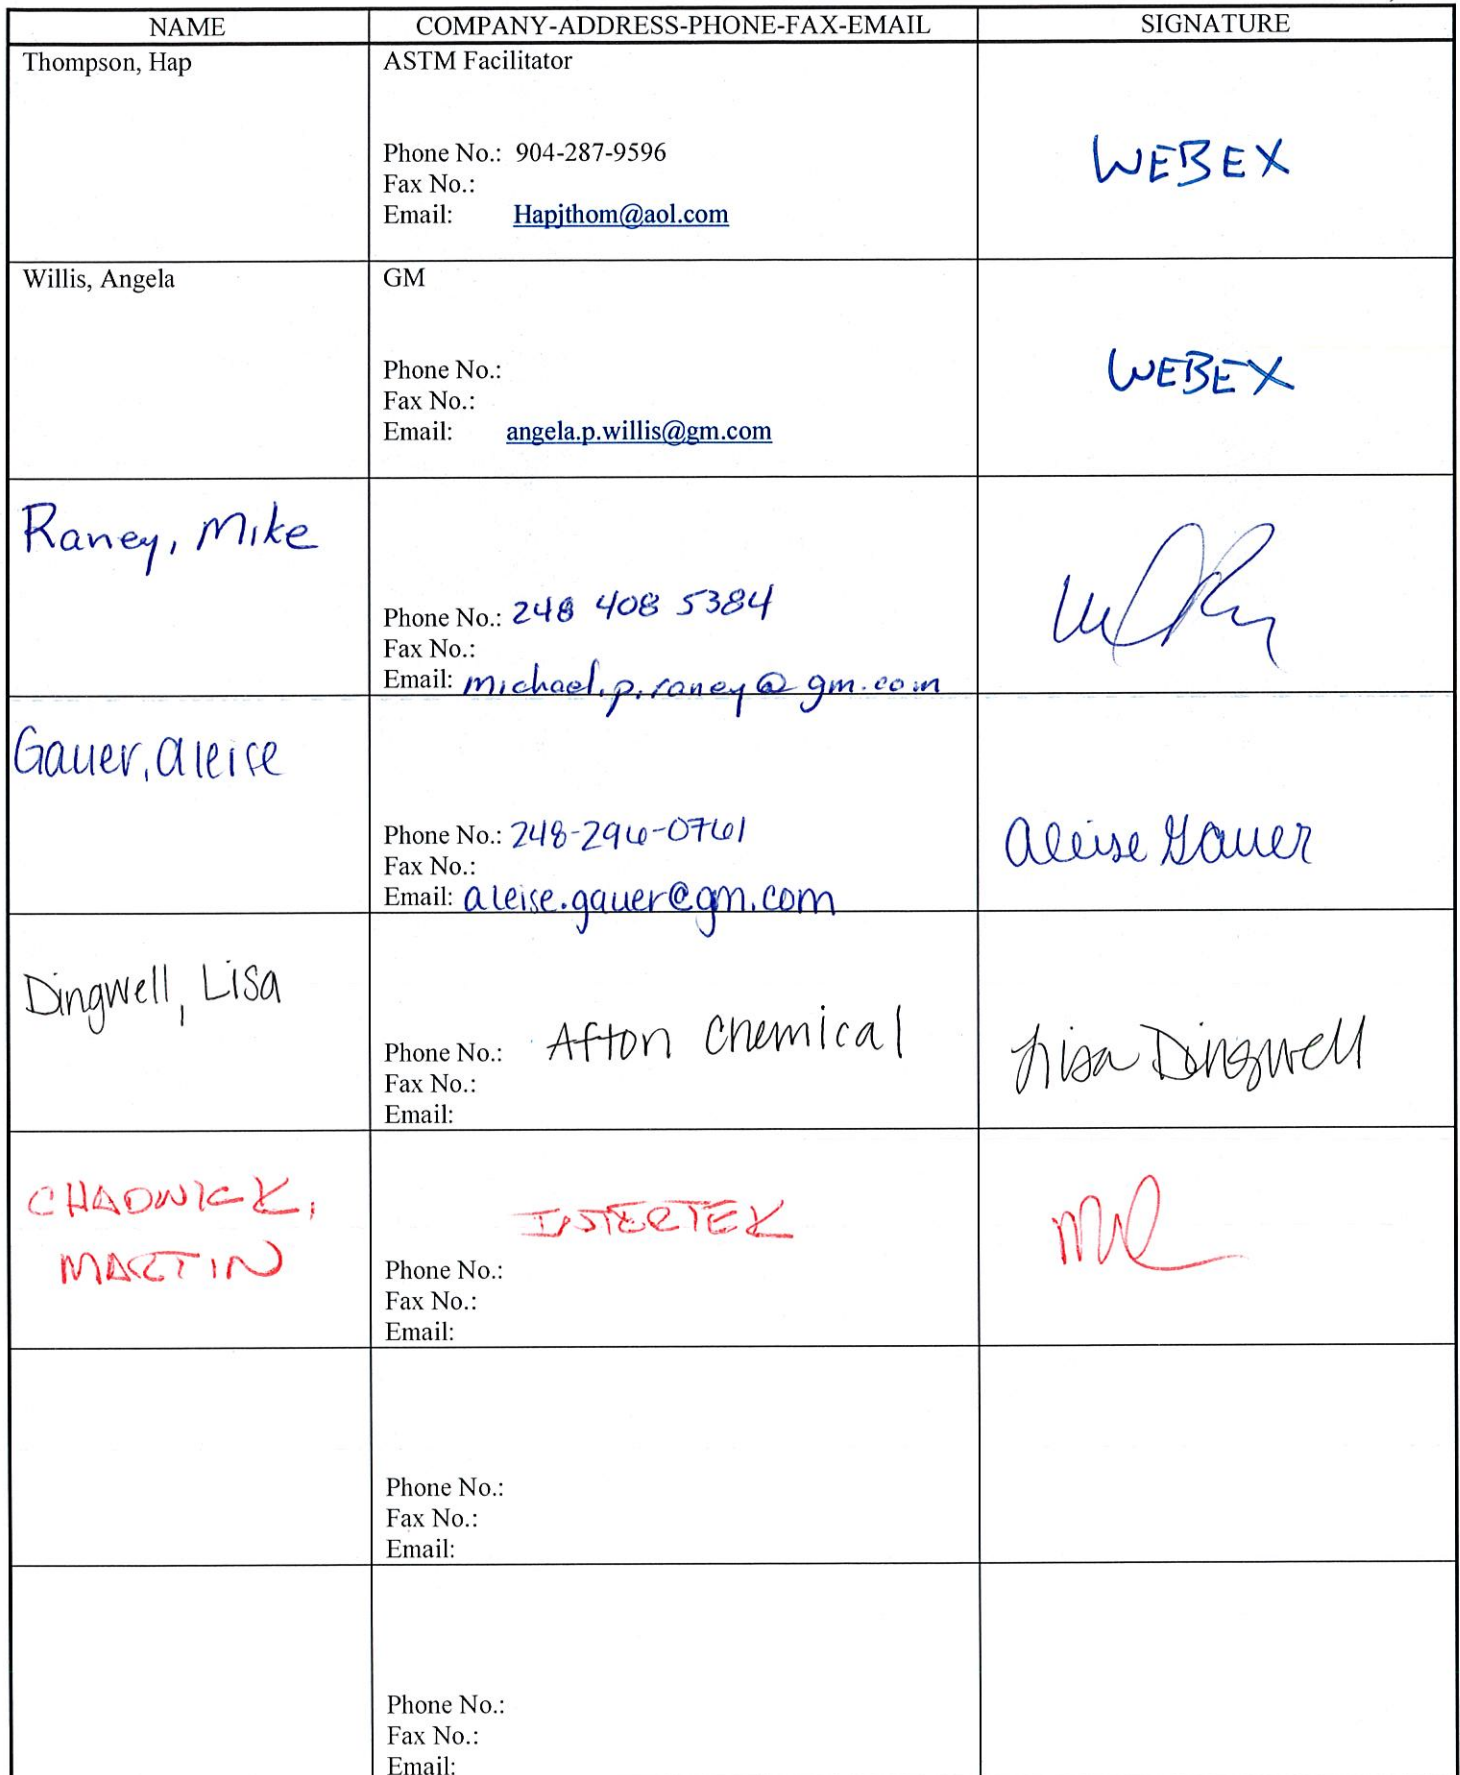 NAME COMPANY-ADDRESS-PHONE-FAX-EMAIL SIGNATURE
Thompson, Hap ASTM Facilitator
Phone No.: 904-287-9596
WEBEX
Fax No.:
Email: Hapjthom@aol.com
Willis, Angela GM
Phone No.:
WEBEX
Fax No.:
Email: angela.p.willis@gm.com
Raney, Mike
Phone No.: 248 408 5384
Fax No.:
Email: michael.p.raney@gm.com
Gauer, Aleise
Phone No.: 248-296-0761
Aleise Gauer
Fax No.:
Email: aleise.gauer@gm.com
Dingwell, Lisa
Afton Chemical
Phone No.:
Lisa Dingwell
Fax No.:
Email:
CHADWICK,
MARTIN
INTERTEK
Phone No.:
Fax No.:
Email:
Phone No.:
Fax No.:
Email:
Phone No.:
Fax No.:
Email: